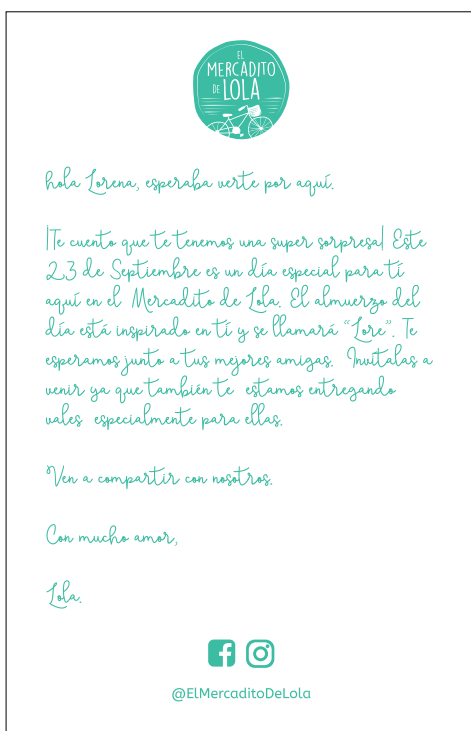 EL
MERCADITO
DE LOLA
hola Lorena, esperaba verte por aquí.
¡Te cuento que te tenemos una super sorpresa! Este
23 de Septiembre es un día especial para tí
aquí en el Mercadito de Lola. El almuerzo del
día está inspirado en tí y se llamará “Lore”. Te
esperamos junto a tus mejores amigas. Invítalas a
venir ya que también te estamos entregando
vales especialmente para ellas.
Ven a compartir con nosotros.
Con mucho amor,
Lola.
@ElMercaditoDeLola